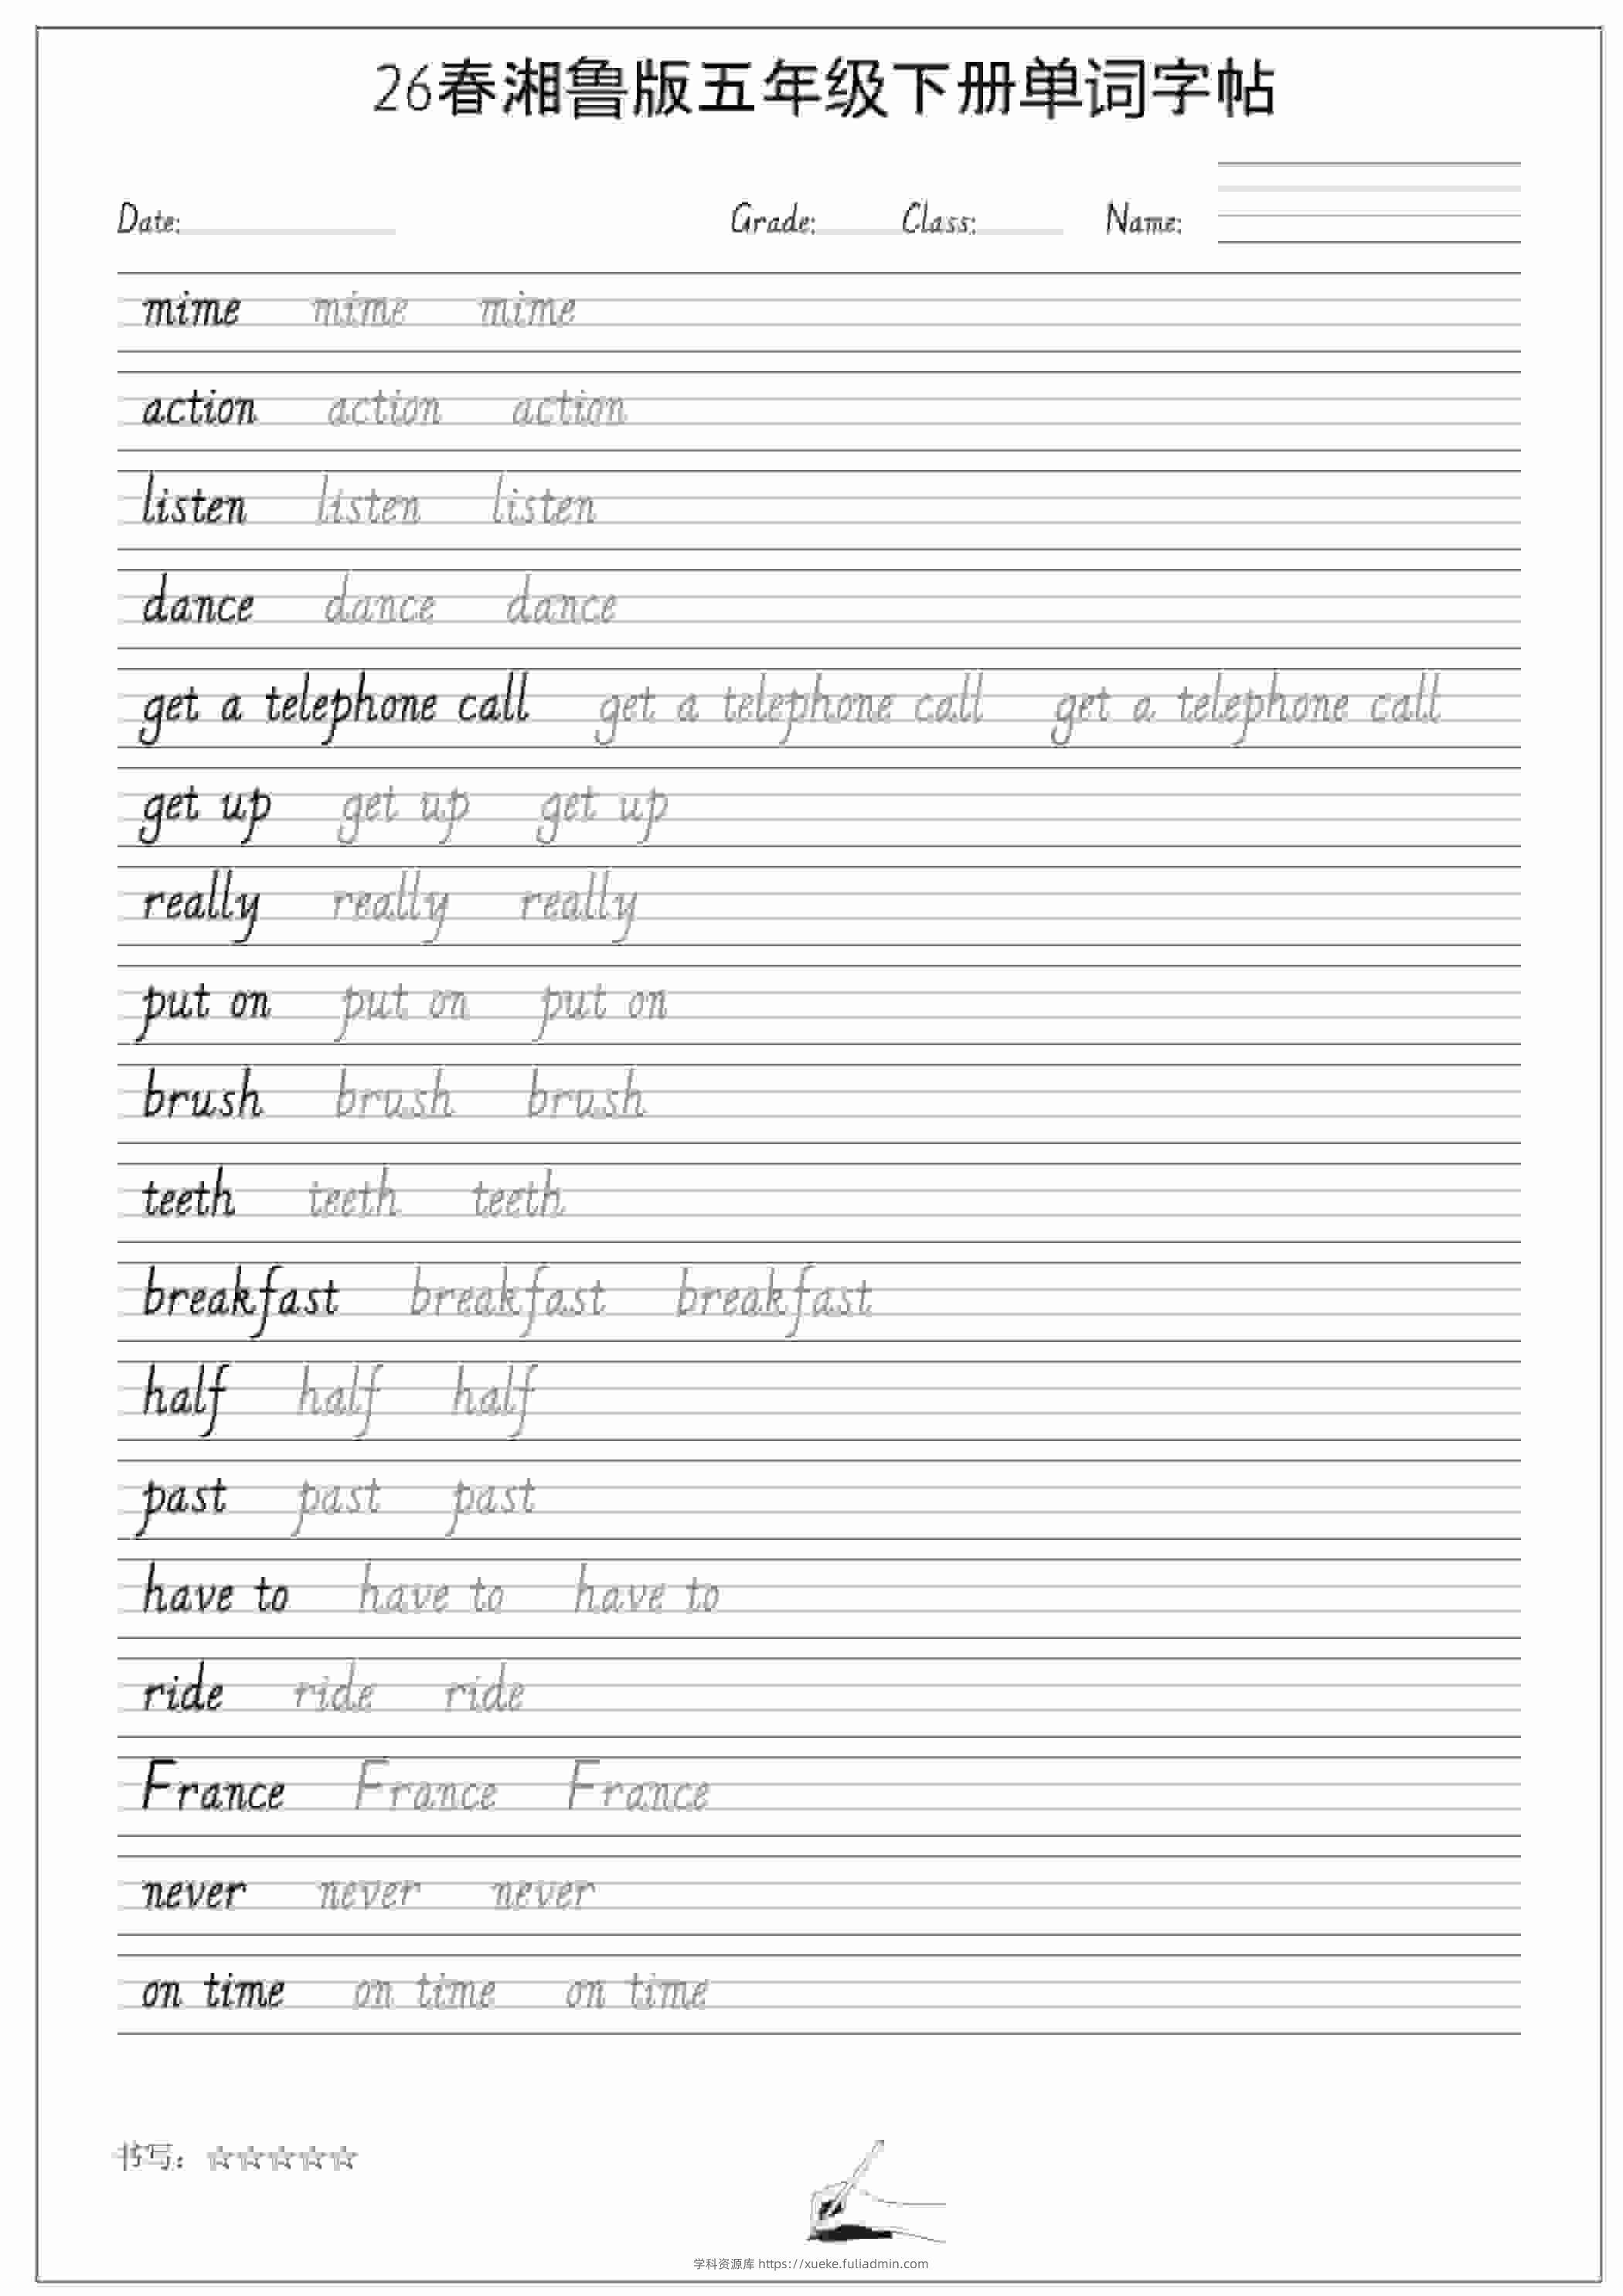 26春湘鲁版五年级下册单词字帖
Date: Grade: Class: Name:
mime mime mime
action action action
listen listen listen
dance dance dance
get a telephone call get a telephone call get a telephone call
get up get up get up
really really really
put on put on put on
brush brush brush
teeth teeth teeth
breakfast breakfast breakfast
half half half
past past past
have to have to have to
ride ride ride
France France France
never never never
on time on time on time
书写：☆☆☆☆☆
学科资源库 https://xueke.fuliadmin.com